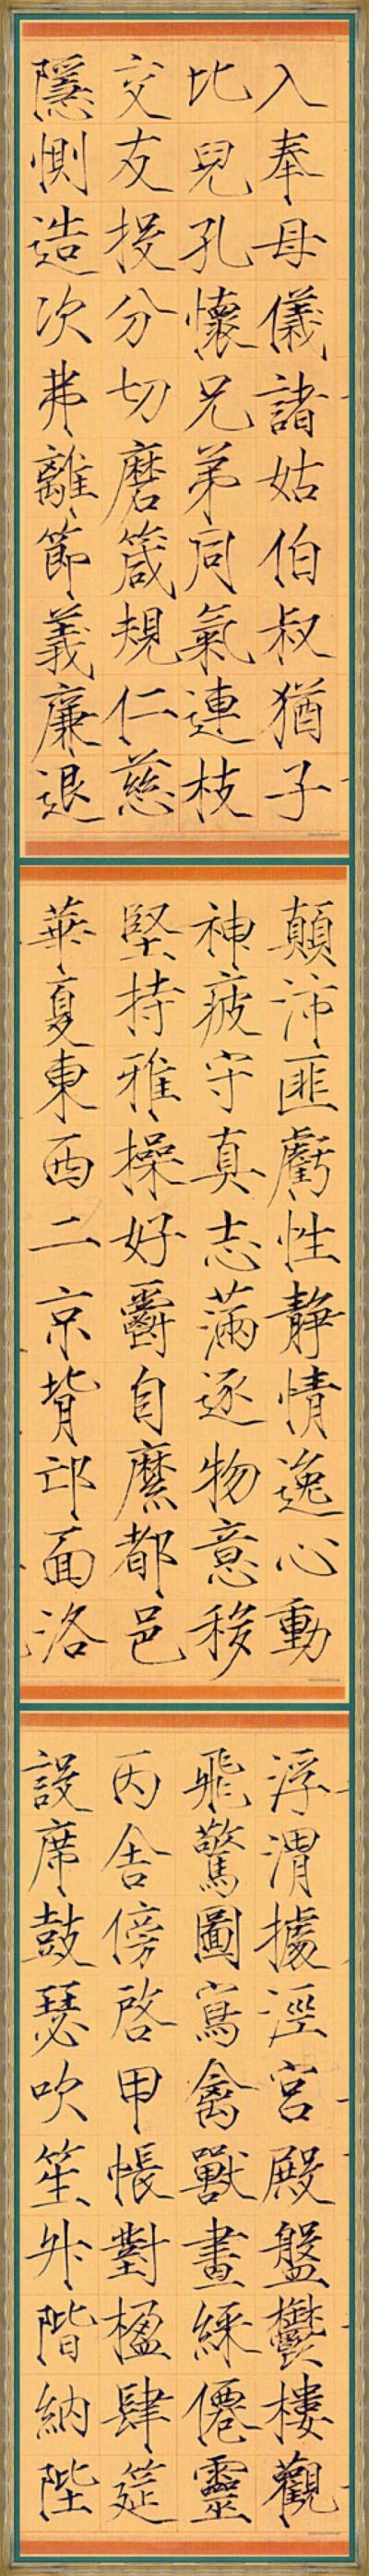 入奉母儀諸姑伯叔猶子
比兒孔懷兄弟同氣連枝
交友投分切磨箴規仁慈
隱惻造次弗離節義廉退
顛沛匪虧性靜情逸心動
神疲守真志滿逐物意移
堅持雅操好爵自縻都邑
華夏東西二京背邙面洛
浮渭據涇宮殿盤鬱樓觀
飛驚圖寫禽獸畫綵僊靈
丙舍傍啓甲帳對楹肆筵
設席鼓瑟吹笙升階納陛